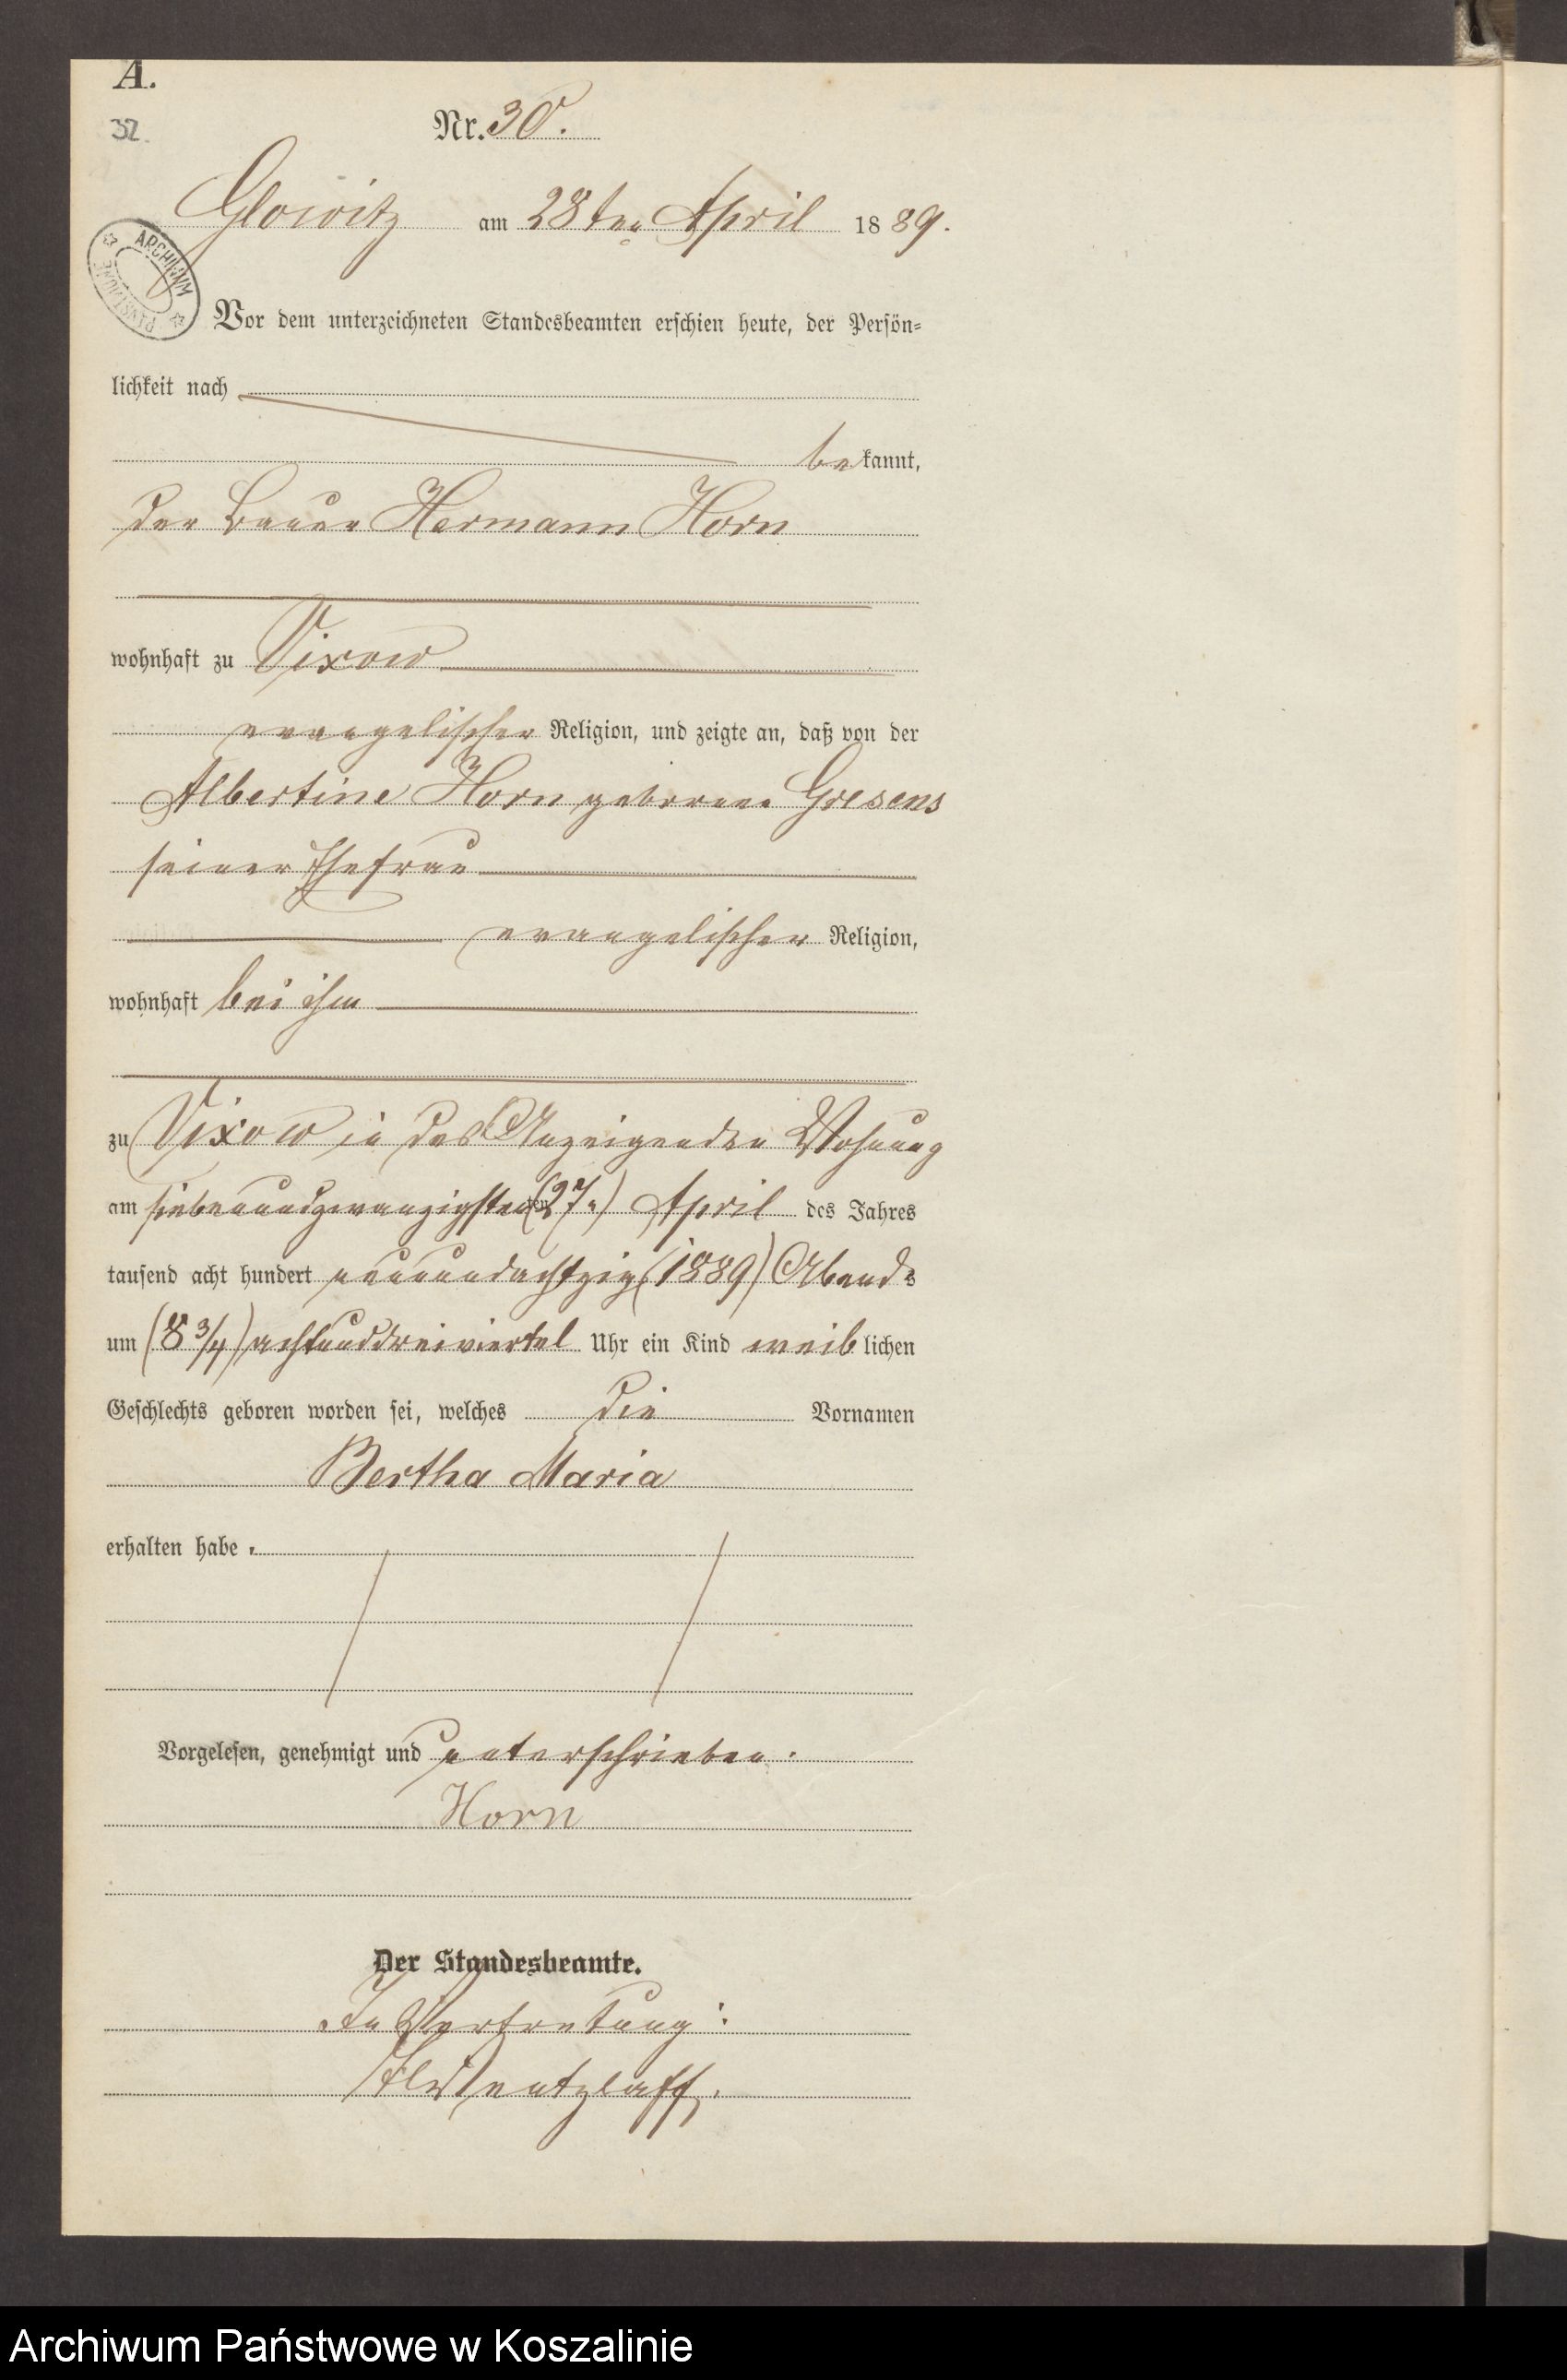 A.
32.
Nr. 30.
Glowitz am 28ten April 1889.
ARCHIWUM
Vor dem unterzeichneten Standesbeamten erschien heute, der Persön=
lichkeit nach
bekannt,
der Bauer Hermann Horn
wohnhaft zu Vixow
evangelischer Religion, und zeigte an, daß von der
Albertine Horn geborene Gresens
seiner Ehefrau
evangelischer Religion,
wohnhaft bei ihm
zu Vixow in des Anzeigenden Wohnung
am siebenundzwanzigsten (27.) April des Jahres
tausend acht hundert neunundachtzig (1889) Abends
um (8 3/4) achtunddreiviertel Uhr ein Kind weiblichen
Geschlechts geboren worden sei, welches die Vornamen
Bertha Maria
erhalten habe.
Vorgelesen, genehmigt und unterschrieben.
Horn
Der Standesbeamte.
In Vertretung:
Archiwum Państwowe w Koszalinie